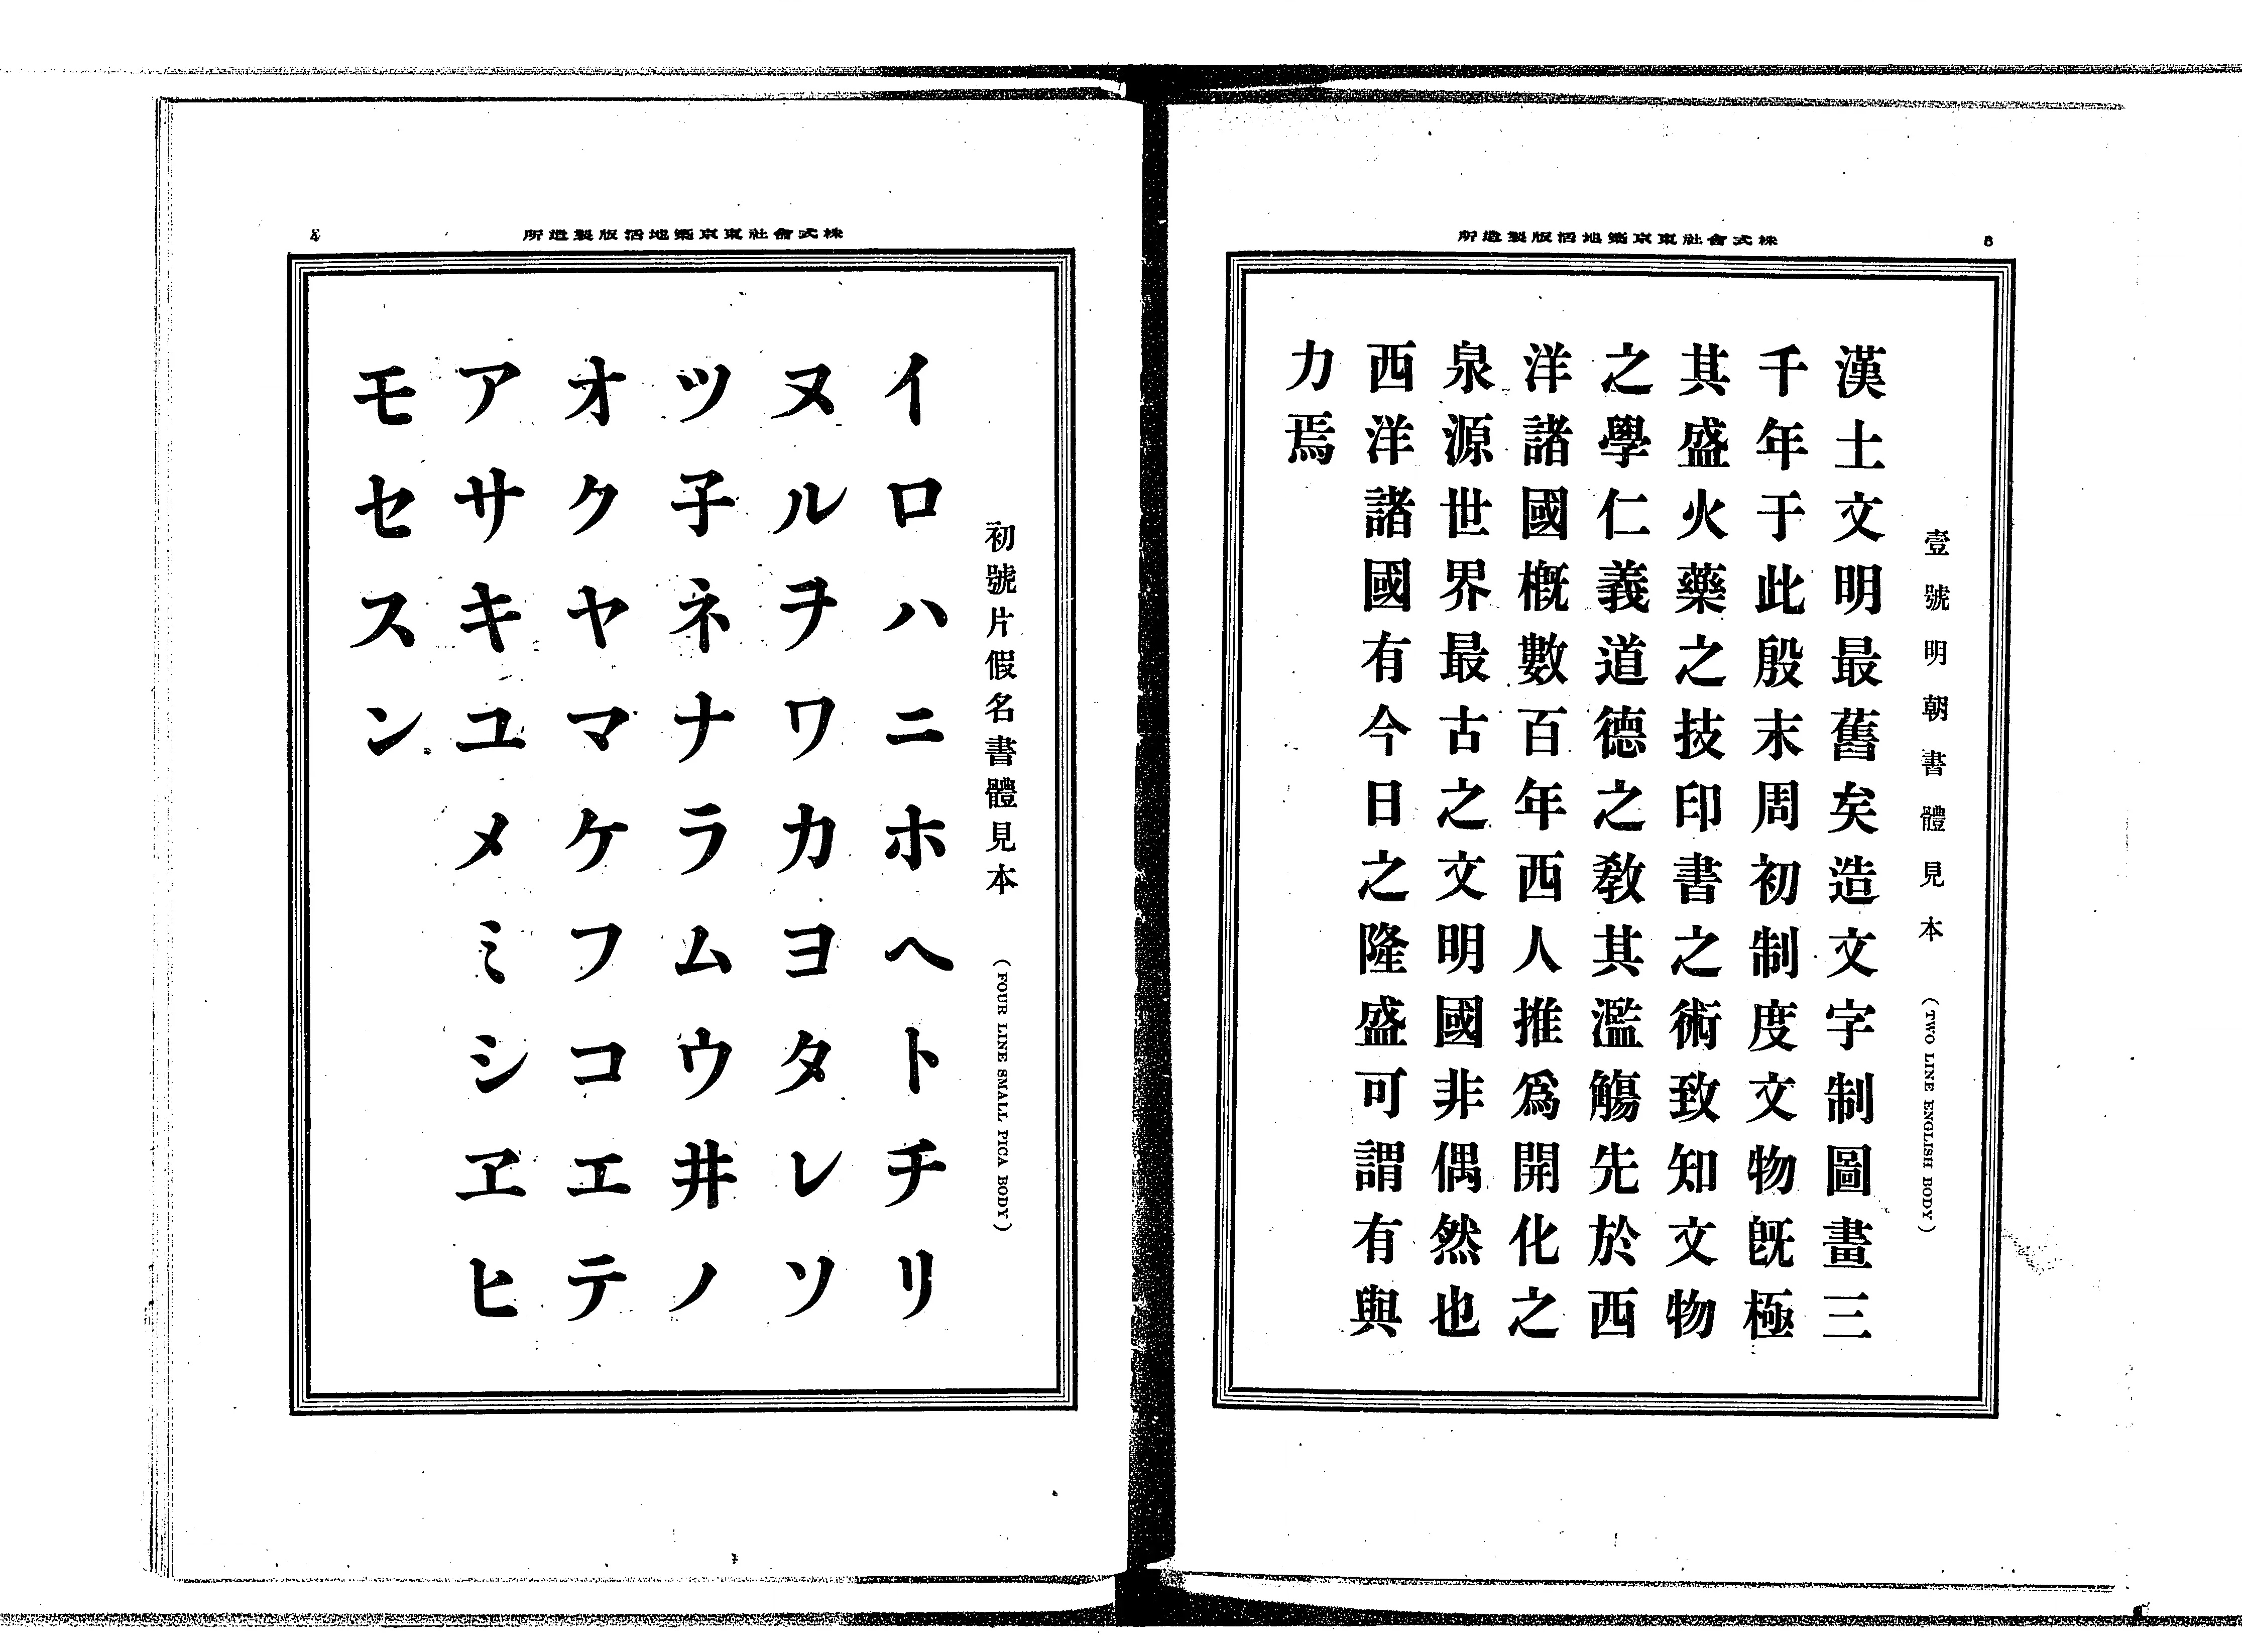 3
株式會社東京築地活版製造所
壹號明朝書體見本 (TWO LINE ENGLISH BODY)
漢土文明最舊矣造文字制圖畫三
千年于此殷末周初制度文物旣極
其盛火藥之技印書之術致知文物
之學仁義道德之敎其濫觴先於西
洋諸國概數百年西人推爲開化之
泉源世界最古之文明國非偶然也
西洋諸國有今日之隆盛可謂有與
力焉
株式會社東京築地活版製造所
4
初號片假名書體見本 (FOUR LINE SMALL PICA BODY)
イロハニホヘトチリ
ヌルヲワカヨタレソ
ツ子ネナラムウ井ノ
オクヤマケフコエテ
アサキユメミシヱヒ
モセスン